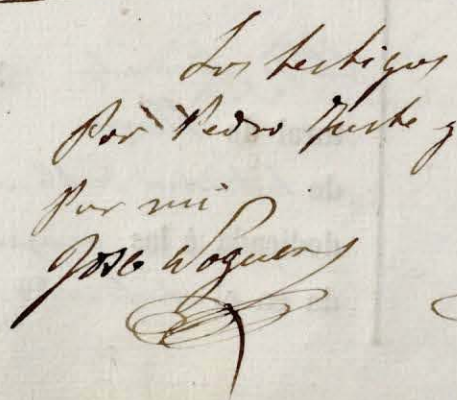 Los testigos
Por Pedro Juste y
Por mi
Jose Noguera